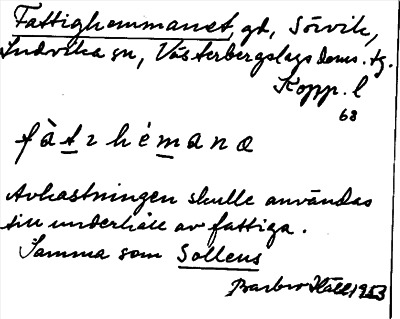 Fattighemmanet, gd, Sörvik,
Ludvika sn, Västerbergslags doms. tg.
Kopp. l
68
fàt₂hémanə
Avkastningen skulle användas
till underhåll av fattiga.
Samma som Sollens
Barbro Häll 1953